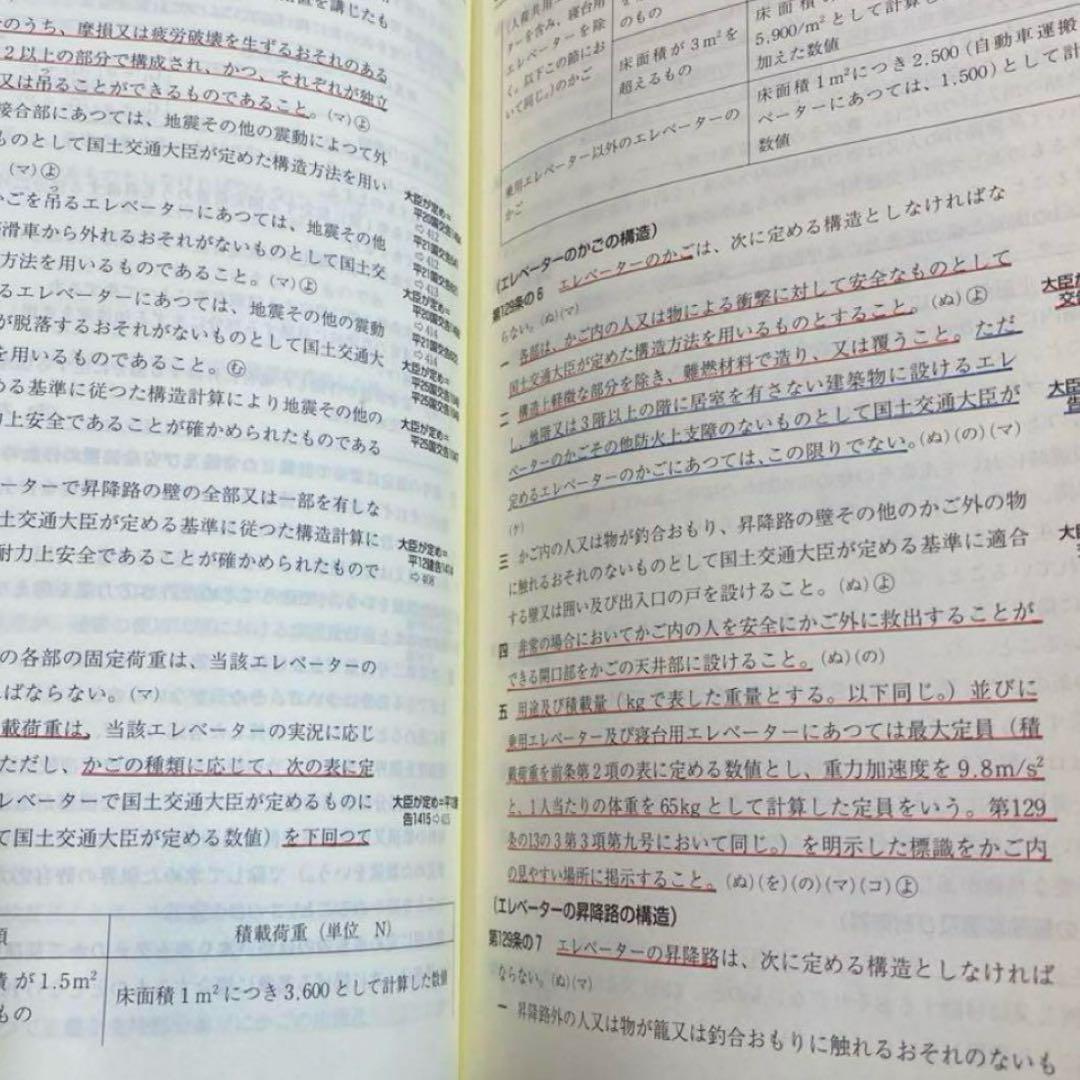 置を講じたも
のうち、摩損又は疲労破壊を生ずるおそれのある
2以上の部分で構成され、かつ、それぞれが独立
又は吊ることができるものであること。(マ)㋵
接合部にあつては、地震その他の震動によつて外
ものとして国土交通大臣が定めた構造方法を用い
(マ)㋵
かごを吊るエレベーターにあつては、地震その他
滑車から外れるおそれがないものとして国土交
方法を用いるものであること。(マ)㋵
るエレベーターにあつては、地震その他の震動
が脱落するおそれがないものとして国土交通大
を用いるものであること。㋰
める基準に従つた構造計算により地震その他の
力上安全であることが確かめられたものである
ーターで昇降路の壁の全部又は一部を有しな
土交通大臣が定める基準に従つた構造計算に
耐力上安全であることが確かめられたもので
大臣が定め=
大臣が定め=
大臣が定め=
大臣が定め=
大臣が定め=
平12建告1414
⇨408
の各部の固定荷重は、当該エレベーターの
ばならない。(マ)
載荷重は、当該エレベーターの実況に応じ
ただし、かごの種類に応じて、次の表に定
レベーターで国土交通大臣が定めるものに
て国土交通大臣が定める数値)を下回つて
大臣が定め=平12建
告1415⇨405
積載荷重(単位 N)
積が1.5m²
もの
床面積1m²につき3,600として計算した数値
ターを含み、寝台用
エレベーターを除
く。以下この節にお
いて同じ。)のかご
のもの
床面積が3m²を
超えるもの
5,900/m²として計算し
加えた数値
乗用エレベーター以外のエレベーターの
かご
床面積1m²につき2,500(自動車運搬
ベーターにあつては、1,500)として計
数値
(エレベーターのかごの構造)
第129条の6 エレベーターのかごは、次に定める構造としなければな
らない。(ぬ)(マ)
一 各部は、かご内の人又は物による衝撃に対して安全なものとして
国土交通大臣が定めた構造方法を用いるものとすること。(ぬ)㋵
二 構造上軽微な部分を除き、難燃材料で造り、又は覆うこと。ただ
し、地階又は3階以上の階に居室を有さない建築物に設けるエレ
ベーターのかごその他防火上支障のないものとして国土交通大臣が
定めるエレベーターのかごにあつては、この限りでない。(ぬ)(の)(マ)
(ケ)
三 かご内の人又は物が釣合おもり、昇降路の壁その他のかご外の物
に触れるおそれのないものとして国土交通大臣が定める基準に適合
する壁又は囲い及び出入口の戸を設けること。(ぬ)㋵
四 非常の場合においてかご内の人を安全にかご外に救出することが
できる開口部をかごの天井部に設けること。(ぬ)(の)
五 用途及び積載量(kgで表した重量とする。以下同じ。)並びに
乗用エレベーター及び寝台用エレベーターにあつては最大定員(積
載荷重を前条第2項の表に定める数値とし、重力加速度を9.8m/s²
と、1人当たりの体重を65kgとして計算した定員をいう。第129
条の13の3第3項第九号において同じ。)を明示した標識をかご内
の見やすい場所に掲示すること。(ぬ)(を)(の)(マ)(コ)㋵
(エレベーターの昇降路の構造)
第129条の7 エレベーターの昇降路は、次に定める構造としなければ
ならない。(ぬ)(マ)
一 昇降路外の人又は物が籠又は釣合おもりに触れるおそれのないも